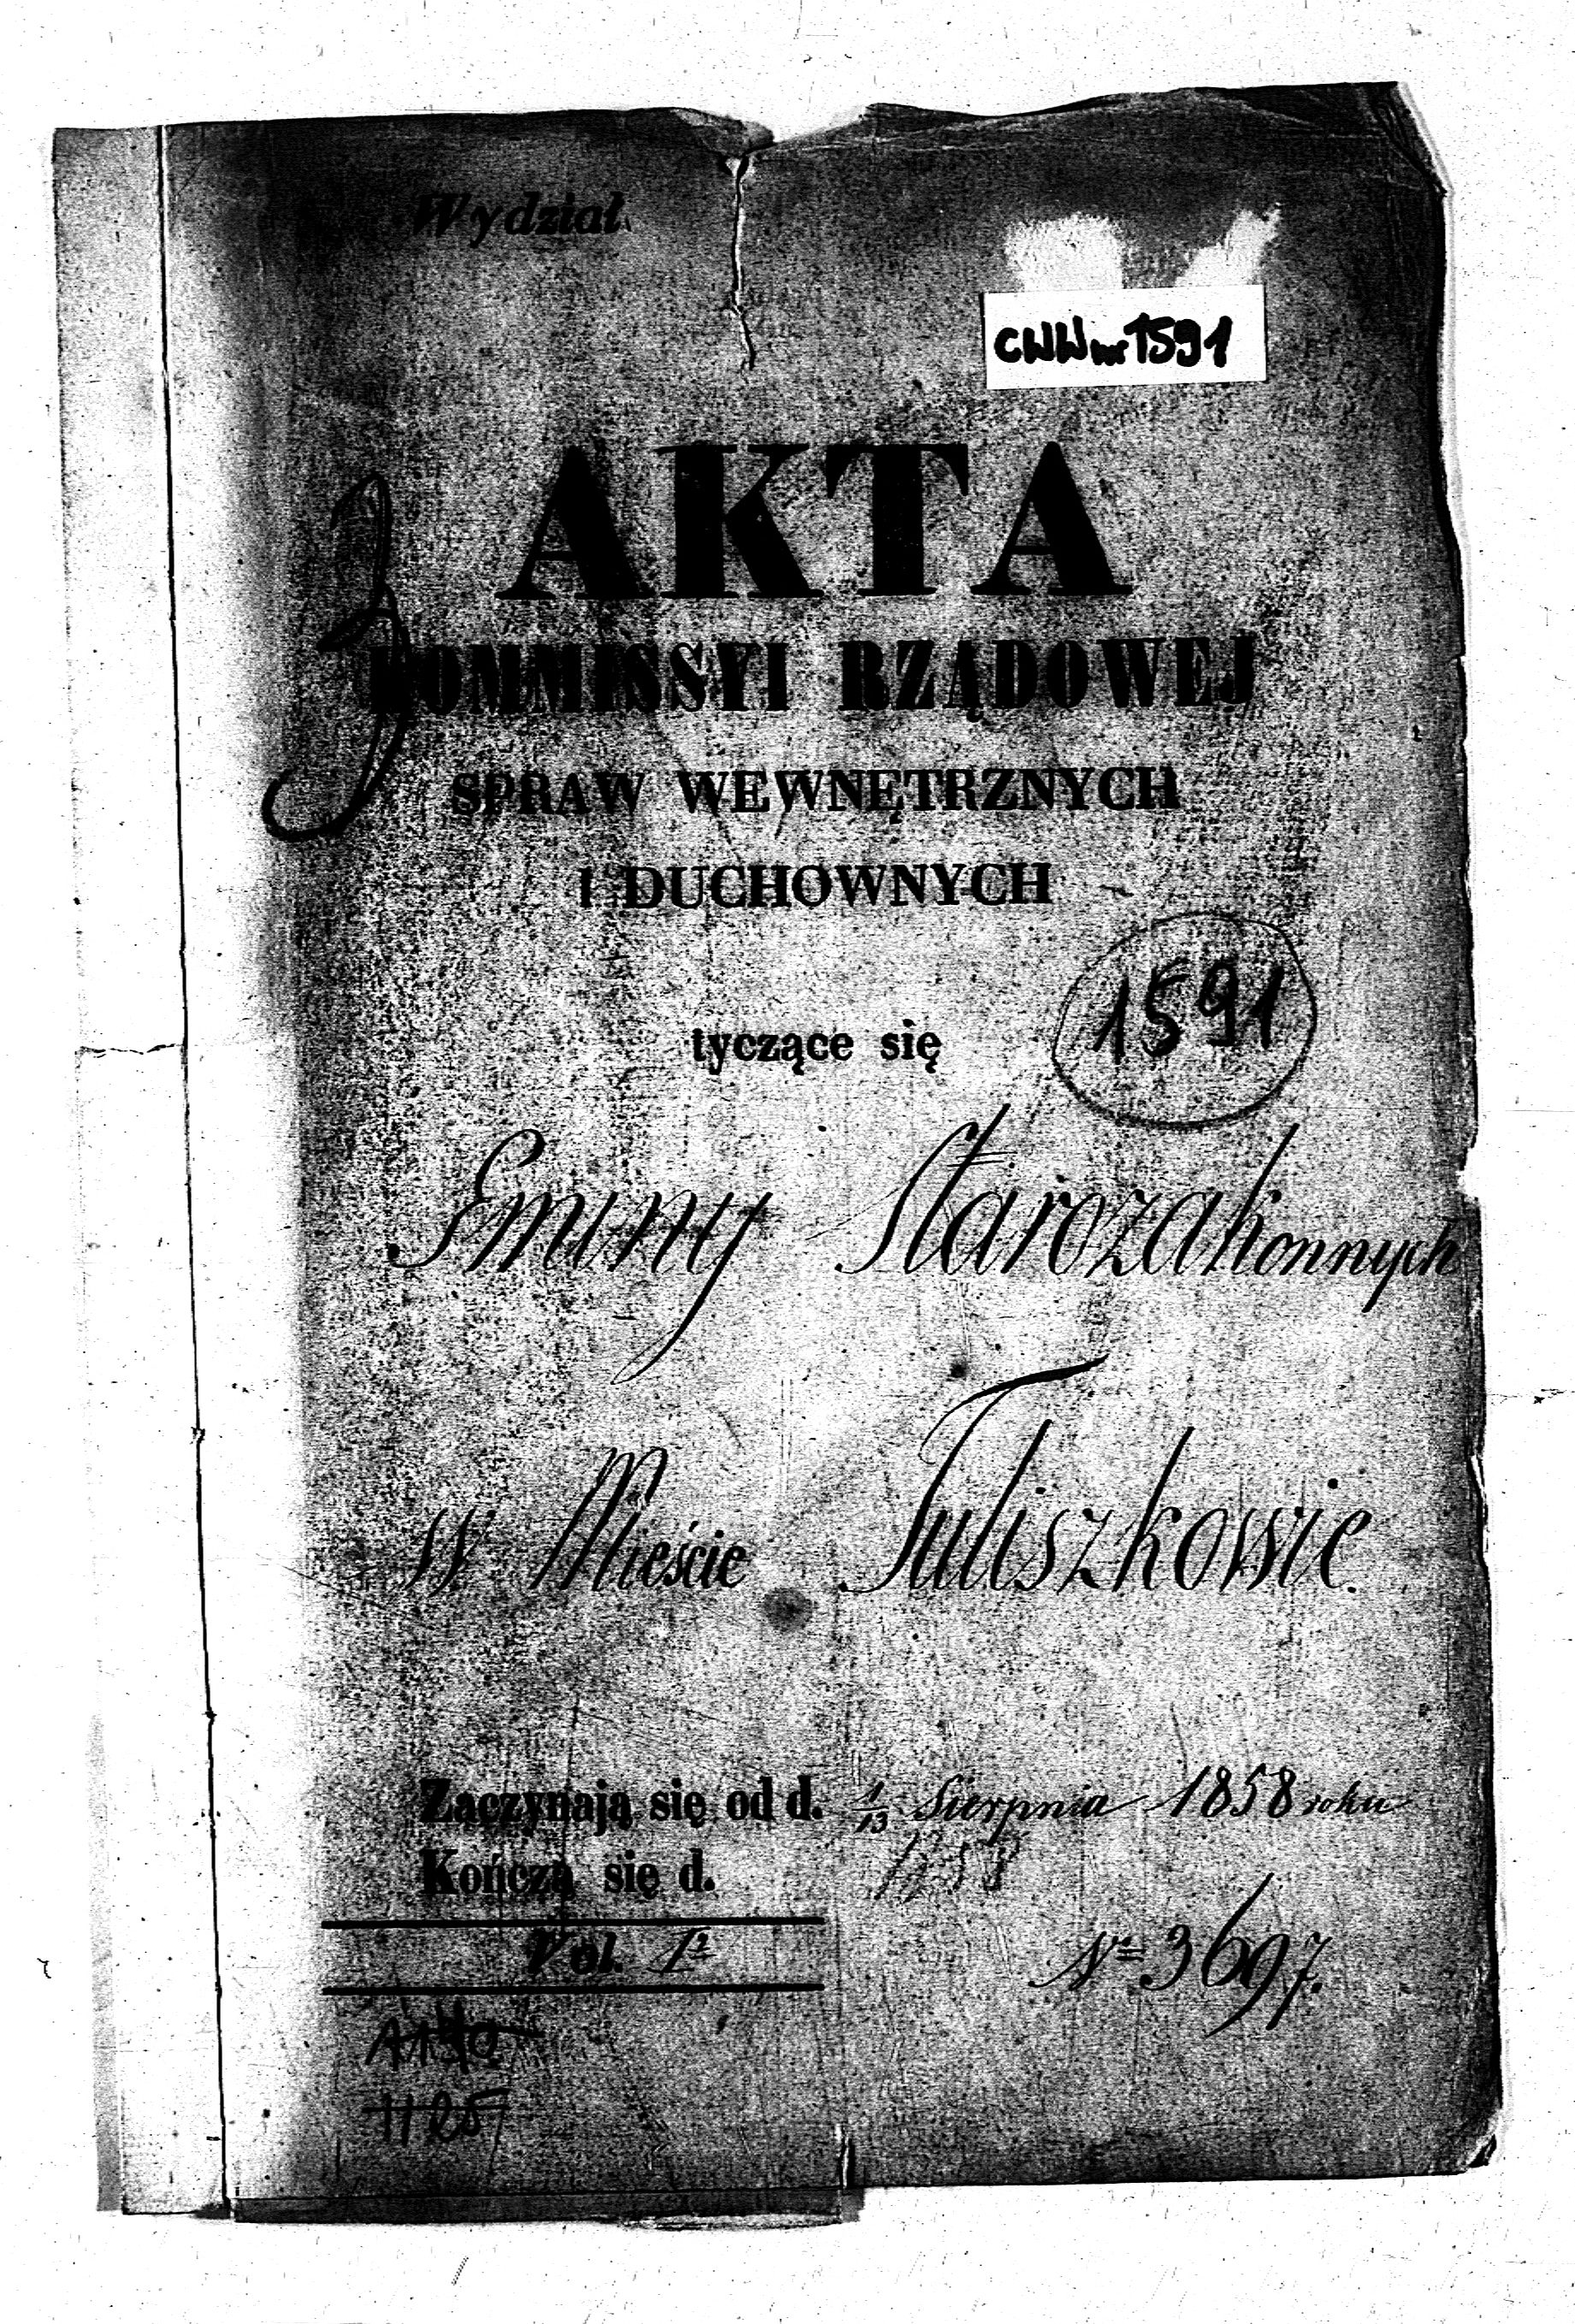 Wydział
CWW nr 1591
AKTA
KOMMISSYI RZĄDOWEJ
SPRAW WEWNĘTRZNYCH
I DUCHOWNYCH
1591
tyczące się
Gminy Starozakonnych
w Mieście Tuliszkowie.
Zaczynają się od d. 1/13 Sierpnia 1858 roku
Kończą się d. 1858
Vol. I
Nr 3697.
1125